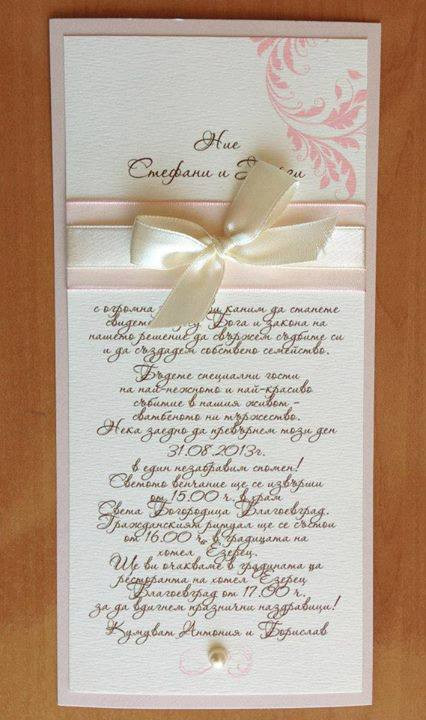 Ние
Стефани и
с огромна каним да станете
Бога и закона на
нашето решение да свържем съдбите си
и да създадем собствено семейство.
Бъдете специални гости
на най-нежното и най-красиво
събитие в нашия живот -
сватбеното ни тържество.
Нека заедно да превърнем този ден
31.08.2013г.
в един незабравим спомен!
Светото венчание ще се извърши
от 15.00 ч. в храм
Света Богородица Благоевград.
Гражданският ритуал ще се състои
от 16.00 ч. в градицата на
хотел Езерец.
Ще ви очакваме в градината ца
ресторанта на хотел Езерец
Благоевград от 17.00 ч.
за да вдигнем празнични наздравици!
Кумуват Антония и Борислав